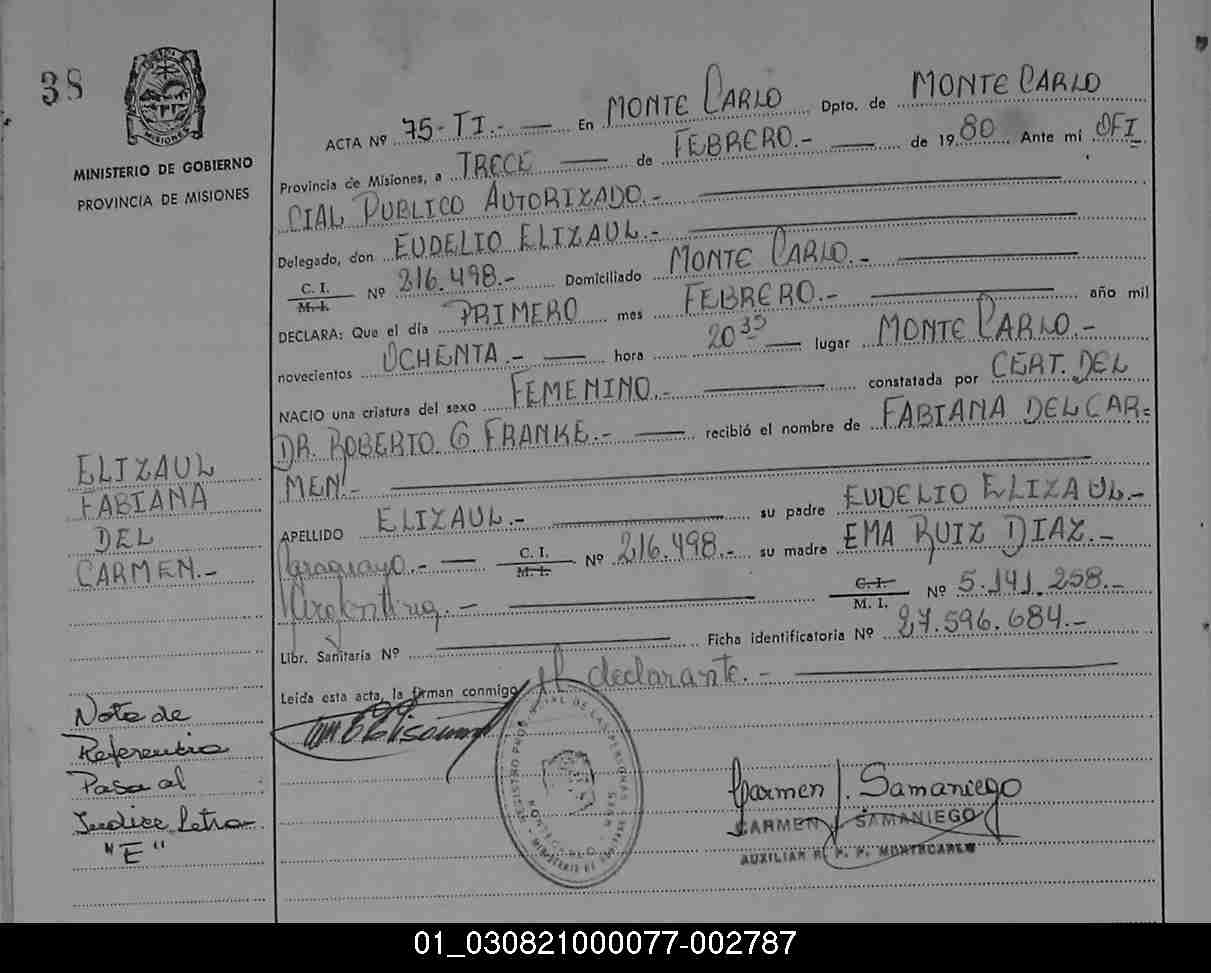 38
MISIONES
MINISTERIO DE GOBIERNO
PROVINCIA DE MISIONES
ELIZAUL
FABIANA
DEL
CARMEN.-
Nota de
Referencia
Pasa al
Indice letra
"E"
ACTA Nº 75-TI.- En MONTE CARLO Dpto. de MONTE CARLO
Provincia de Misiones, a TRECE de FEBRERO.- de 1980 Ante mi OFI
CIAL PUBLICO AUTORIZADO.-
Delegado, don EUDELIO ELIZAUL.-
C. I. M. I. Nº 216.498.- Domiciliado MONTE CARLO.-
DECLARA: Que el día PRIMERO mes FEBRERO.- año mil
novecientos OCHENTA.- hora 20 35 lugar MONTE CARLO.-
NACIO una criatura del sexo FEMENINO.- constatada por CERT. DEL
DR. ROBERTO G. FRANKE.- recibió el nombre de FABIANA DEL CAR=
MEN.-
APELLIDO ELIZAUL.- su padre EUDELIO ELIZAUL.-
Paraguayo.- C. I. M. I. Nº 216.498.- su madre EMA RUIZ DIAZ.-
Argentina.- C. I. M. I. Nº 5.141.258.-
Libr. Sanitaria Nº Ficha identificatoria Nº 27.596.684.-
Leída esta acta, la firman conmigo el declarante.-
Carmen J. Samaniego
CARMEN J. SAMANIEGO
AUXILIAR R. P. P. MONTECARLO
01_030821000077-002787